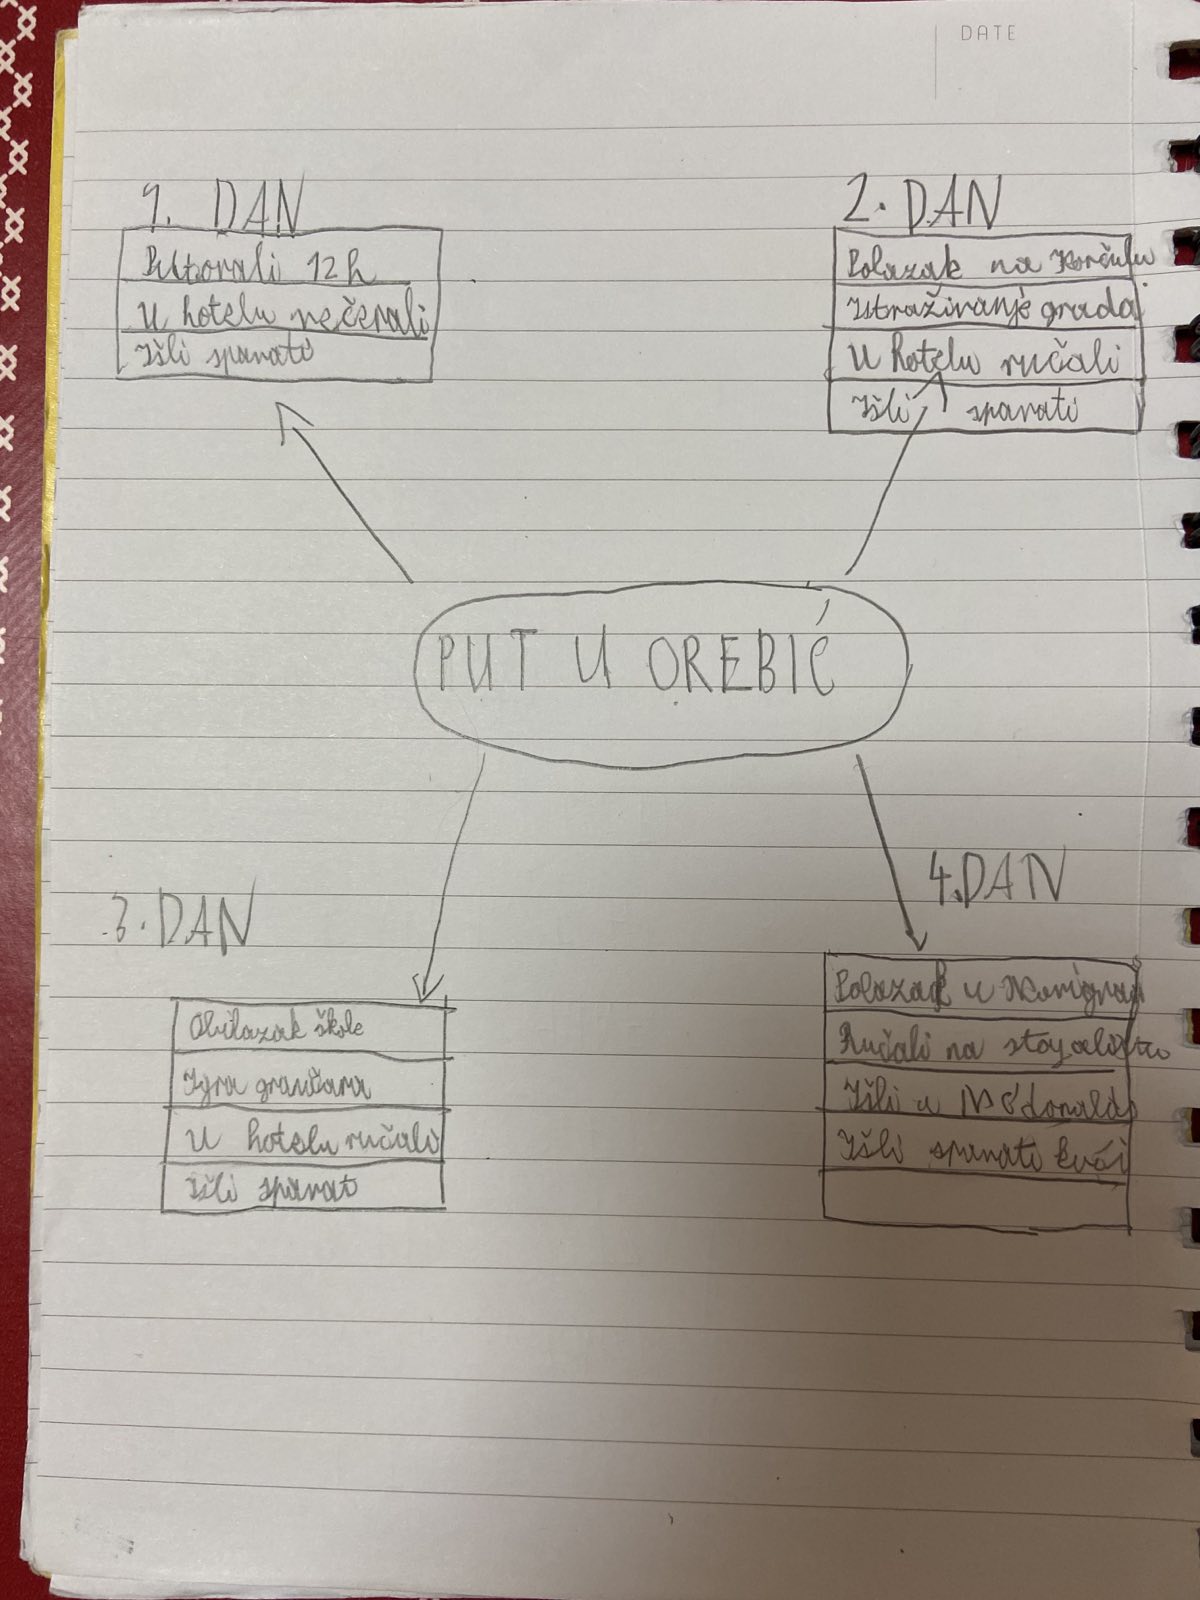 DATE
1. DAN
Putovali 12h
U hotelu večerali
Išli spavati
2. DAN
Polazak na Korčulu
Istraživanje grada
U hotelu ručali
Išli spavati
PUT U OREBIĆ
3. DAN
Obilazak škole
Igra graničara
U hotelu ručali
išli spavat
4. DAN
Polazak u Novigrad
Ručali na stajalištu
Išli u
Išli spavati kući